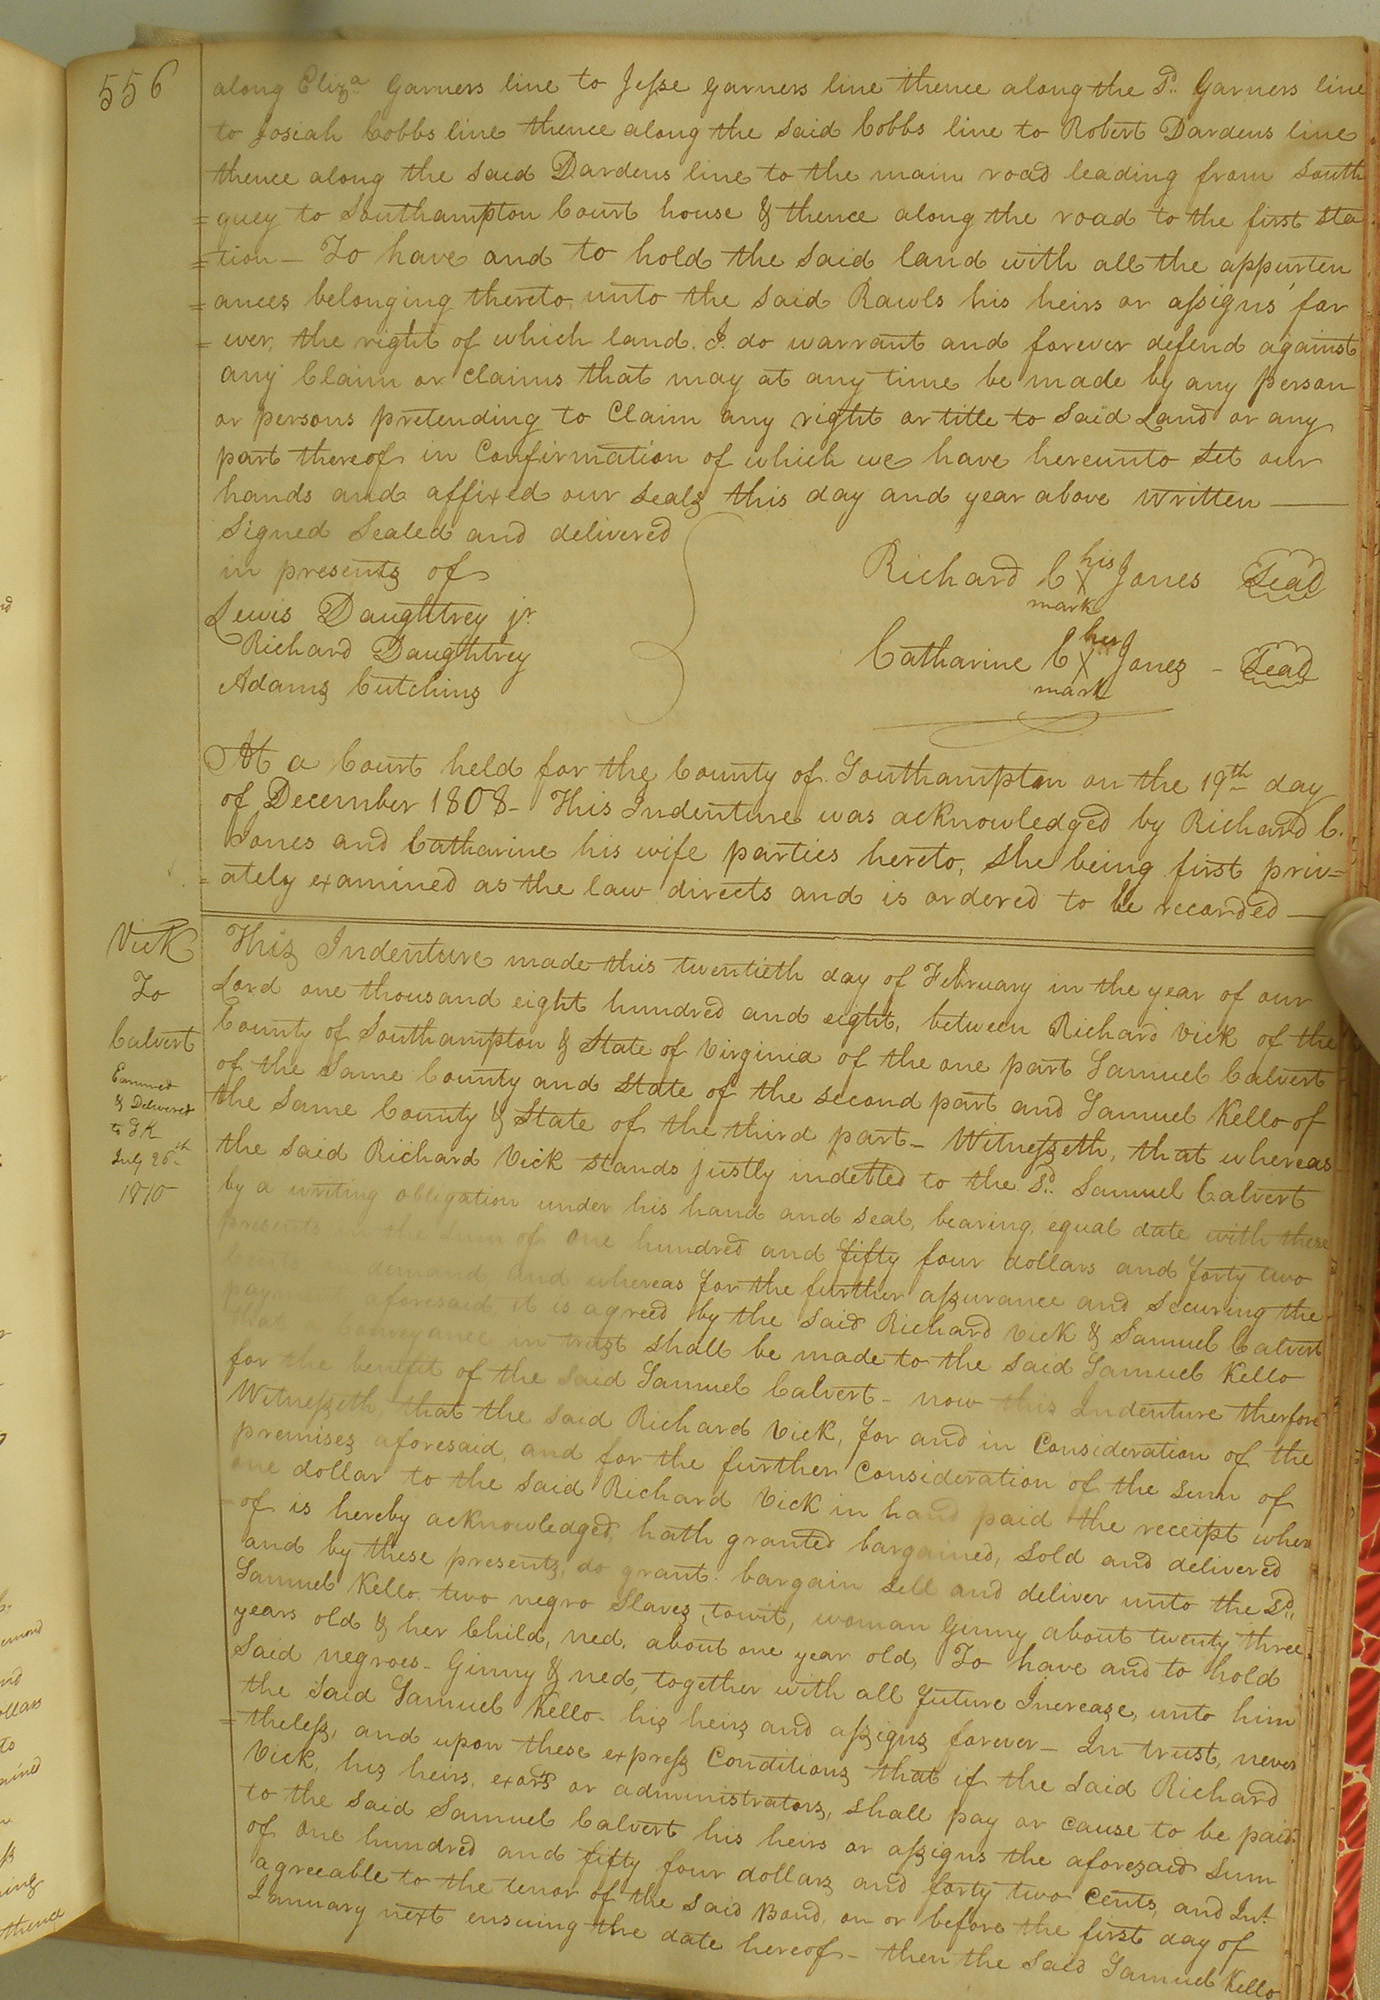 556
along Eliz.a Garners line to Jesse Garners line thence along the Sd. Garners line
to Josiah Cobbs line thence along the said Cobbs line to Robert Dardens line
thence along the said Dardens line to the main road leading from South
=quey to Southampton Court house & thence along the road to the first sta
=tion - To have and to hold the said land with all the appurten
=ances belonging thereto, unto the said Rawls his heirs or assigns for
=ever, the right of which land. I. do warrant and forever defend against
any Claim or claims that may at any time be made by any person
or persons pretending to Claim any right or title to said Land or any
part thereof in Confirmation of which we have hereunto set our
hands and affixed our seals this day and year above written —
Signed Sealed and delivered
in presents of
Lewis Daughtrey jr.
Richard Daughtrey
Adams Cutchins
Richard C his X mark Jones Seal
Catharine C her X mark Jones - Seal
At a Court held for the County of Southampton on the 19th day
of December 1808 - This Indenture was acknowledged by Richard C.
Jones and Catharine his wife parties hereto, She being first priv=
=ately examined as the law directs and is ordered to be recorded —
Vick
To
Calvert
Examned
& Delivered
to SK
July 26th
1810
This Indenture made this twentieth day of February in the year of our
Lord one thousand eight hundred and eight, between Richard Vick of the
County of Southampton & State of Virginia of the one part Samuel Calvert
of the Same County and State of the second part and Samuel Kello of
the Same County & State of the third part - Witnesseth, that whereas
the said Richard Vick stands justly indebted to the Sd. Samuel Calvert
by a writing obligation under his hand and seal, bearing equal date with these
presents the sum of One hundred and fifty four dollars and forty two
demand and whereas for the further assurance and securing the
payment aforesaid it is agreed by the said Richard Vick & Samuel Calvert
that conveyance in trust shall be made to the said Samuel Kello
for the benefit of the said Samuel Calvert - now this Indenture therfore
Witnesseth, that the said Richard Vick, for and in Consideration of the
premises aforesaid, and for the further Consideration of the sum of
one dollar to the said Richard Vick in hand paid the receipt where
=of is hereby acknowledged, hath granted bargained, sold and delivered
and by these presents, do grant. bargain sell and deliver unto the Sd.
Samuel Kello two negro Slaves, towit, woman Ginny about twenty three
years old & her Child, ned, about one year old, To have and to hold
Said negroes - Ginny & ned, together with all future Increase, unto him
the said Samuel Kello - his heirs and assigns forever - In trust, never
=theless, and upon these express Conditions that if the said Richard
Vick, his heirs, exors or administrators, shall pay or cause to be paid
to the said Samuel Calvert his heirs or assigns the aforesaid Sum
of One hundred and fifty four dollars and forty two Cents, and Int.
agreeable to the tenor of the said Bond, on or before the first day of
January next ensuing the date hereof - then the said Samuel Kello